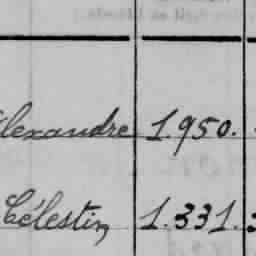 lexandre 1.950.
Célestin, 1.331.